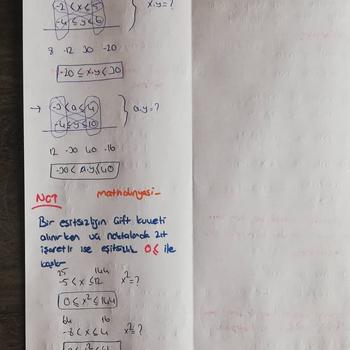 -2 < x ≤ 5
-4 ≤ y ≤ 6
x.y = ?
8 -12 30 -20
-20 ≤ x.y ≤ 30
→ -3 < a ≤ 4
-4 ≤ y ≤ 10
a.y = ?
12 -30 40 -16
-30 < a.y ≤ 40
NOT
mathdunyasi-
Bir eşitsizliğin Çift kuvveti
alınırken uç noktalarda zıt
işaretli ise eşitsizlik 0≤ ile
başlar
25 144
-5 < x ≤ 12 x² = ?
0 ≤ x² ≤ 144
64 16
-8 < x ≤ 4 x² = ?